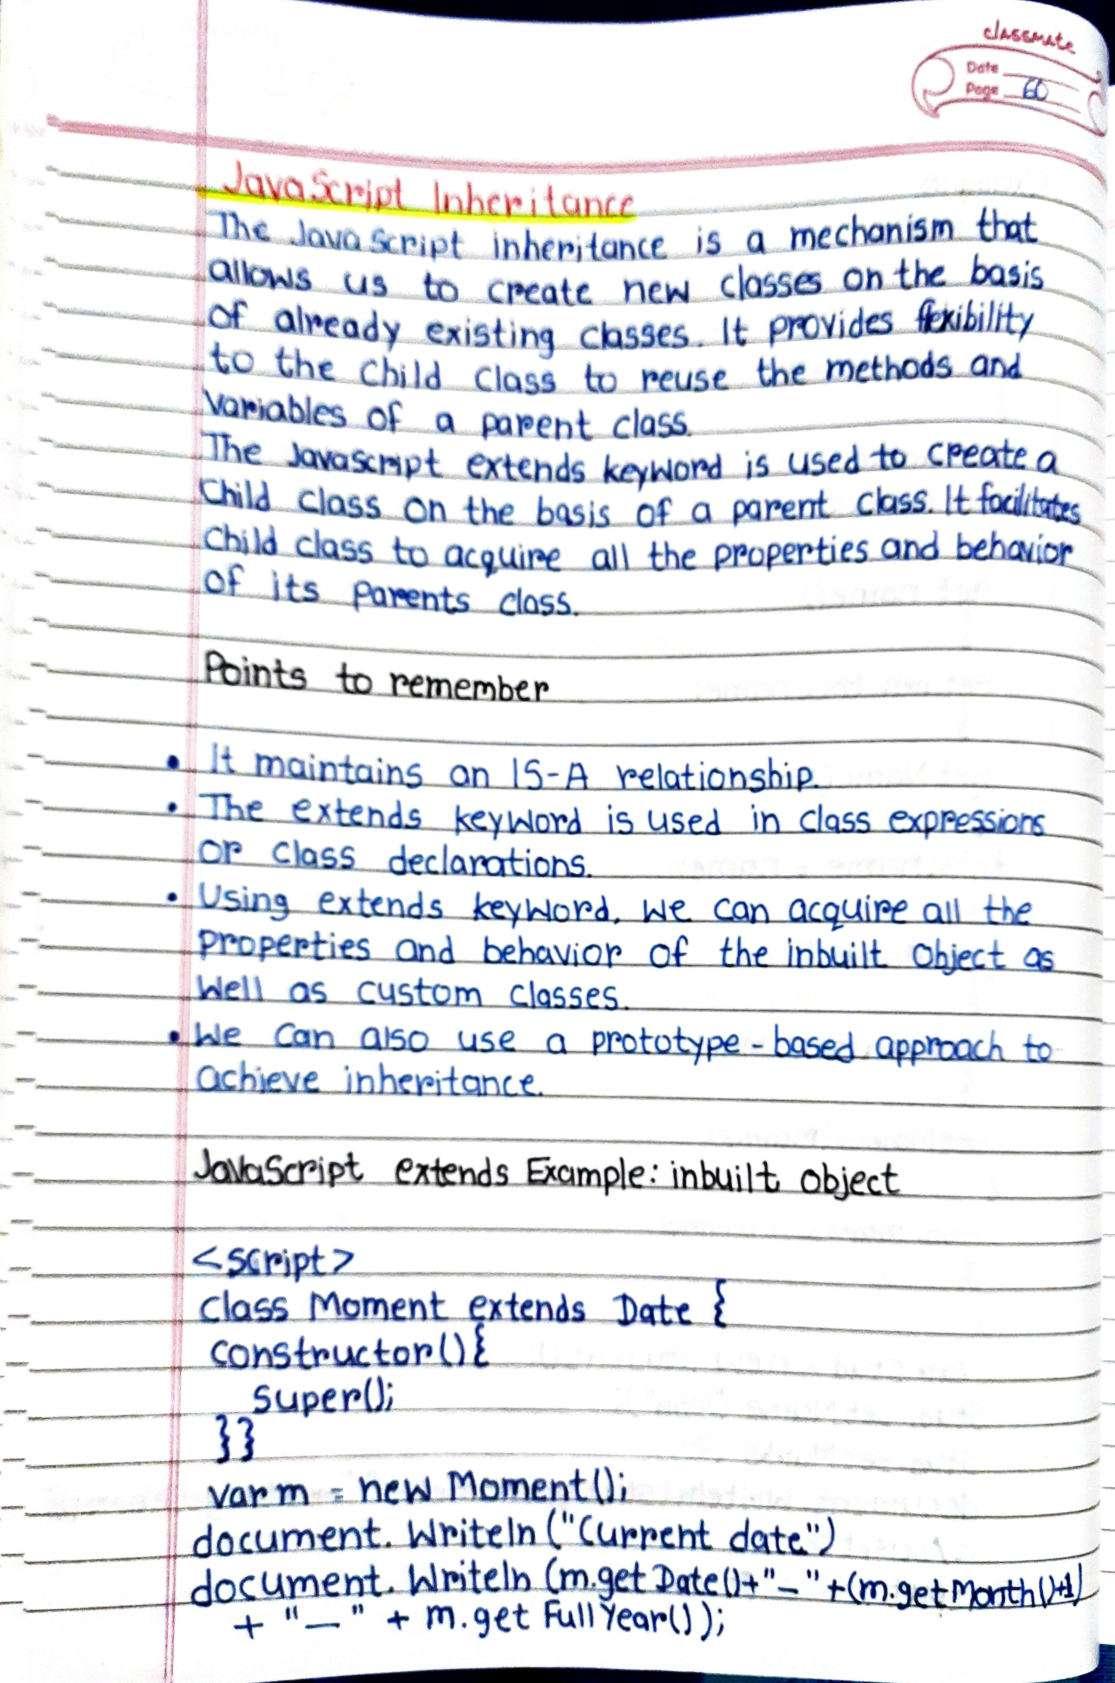 classmate
Date
Page 60
JavaScript Inheritance
The JavaScript inheritance is a mechanism that
allows us to create new classes on the basis
of already existing classes. It provides flexibility
to the child class to reuse the methods and
variables of a parent class.
The Javascript extends keyword is used to create a
child class on the basis of a parent class. It facilitates
child class to acquire all the properties and behavior
of its parents class.
Points to remember
• It maintains an IS-A relationship.
• The extends keyword is used in class expressions
or class declarations.
• Using extends keyword, we can acquire all the
properties and behavior of the inbuilt object as
well as custom classes.
• We can also use a prototype-based approach to
achieve inheritance.
JavaScript extends Example: inbuilt object
<script>
class Moment extends Date {
constructor(){
super();
}}
var m = new Moment();
document.Writeln("Current date")
document.Writeln(m.getDate()+"-"+(m.getMonth()+1)
+ "-" + m.getFullYear());